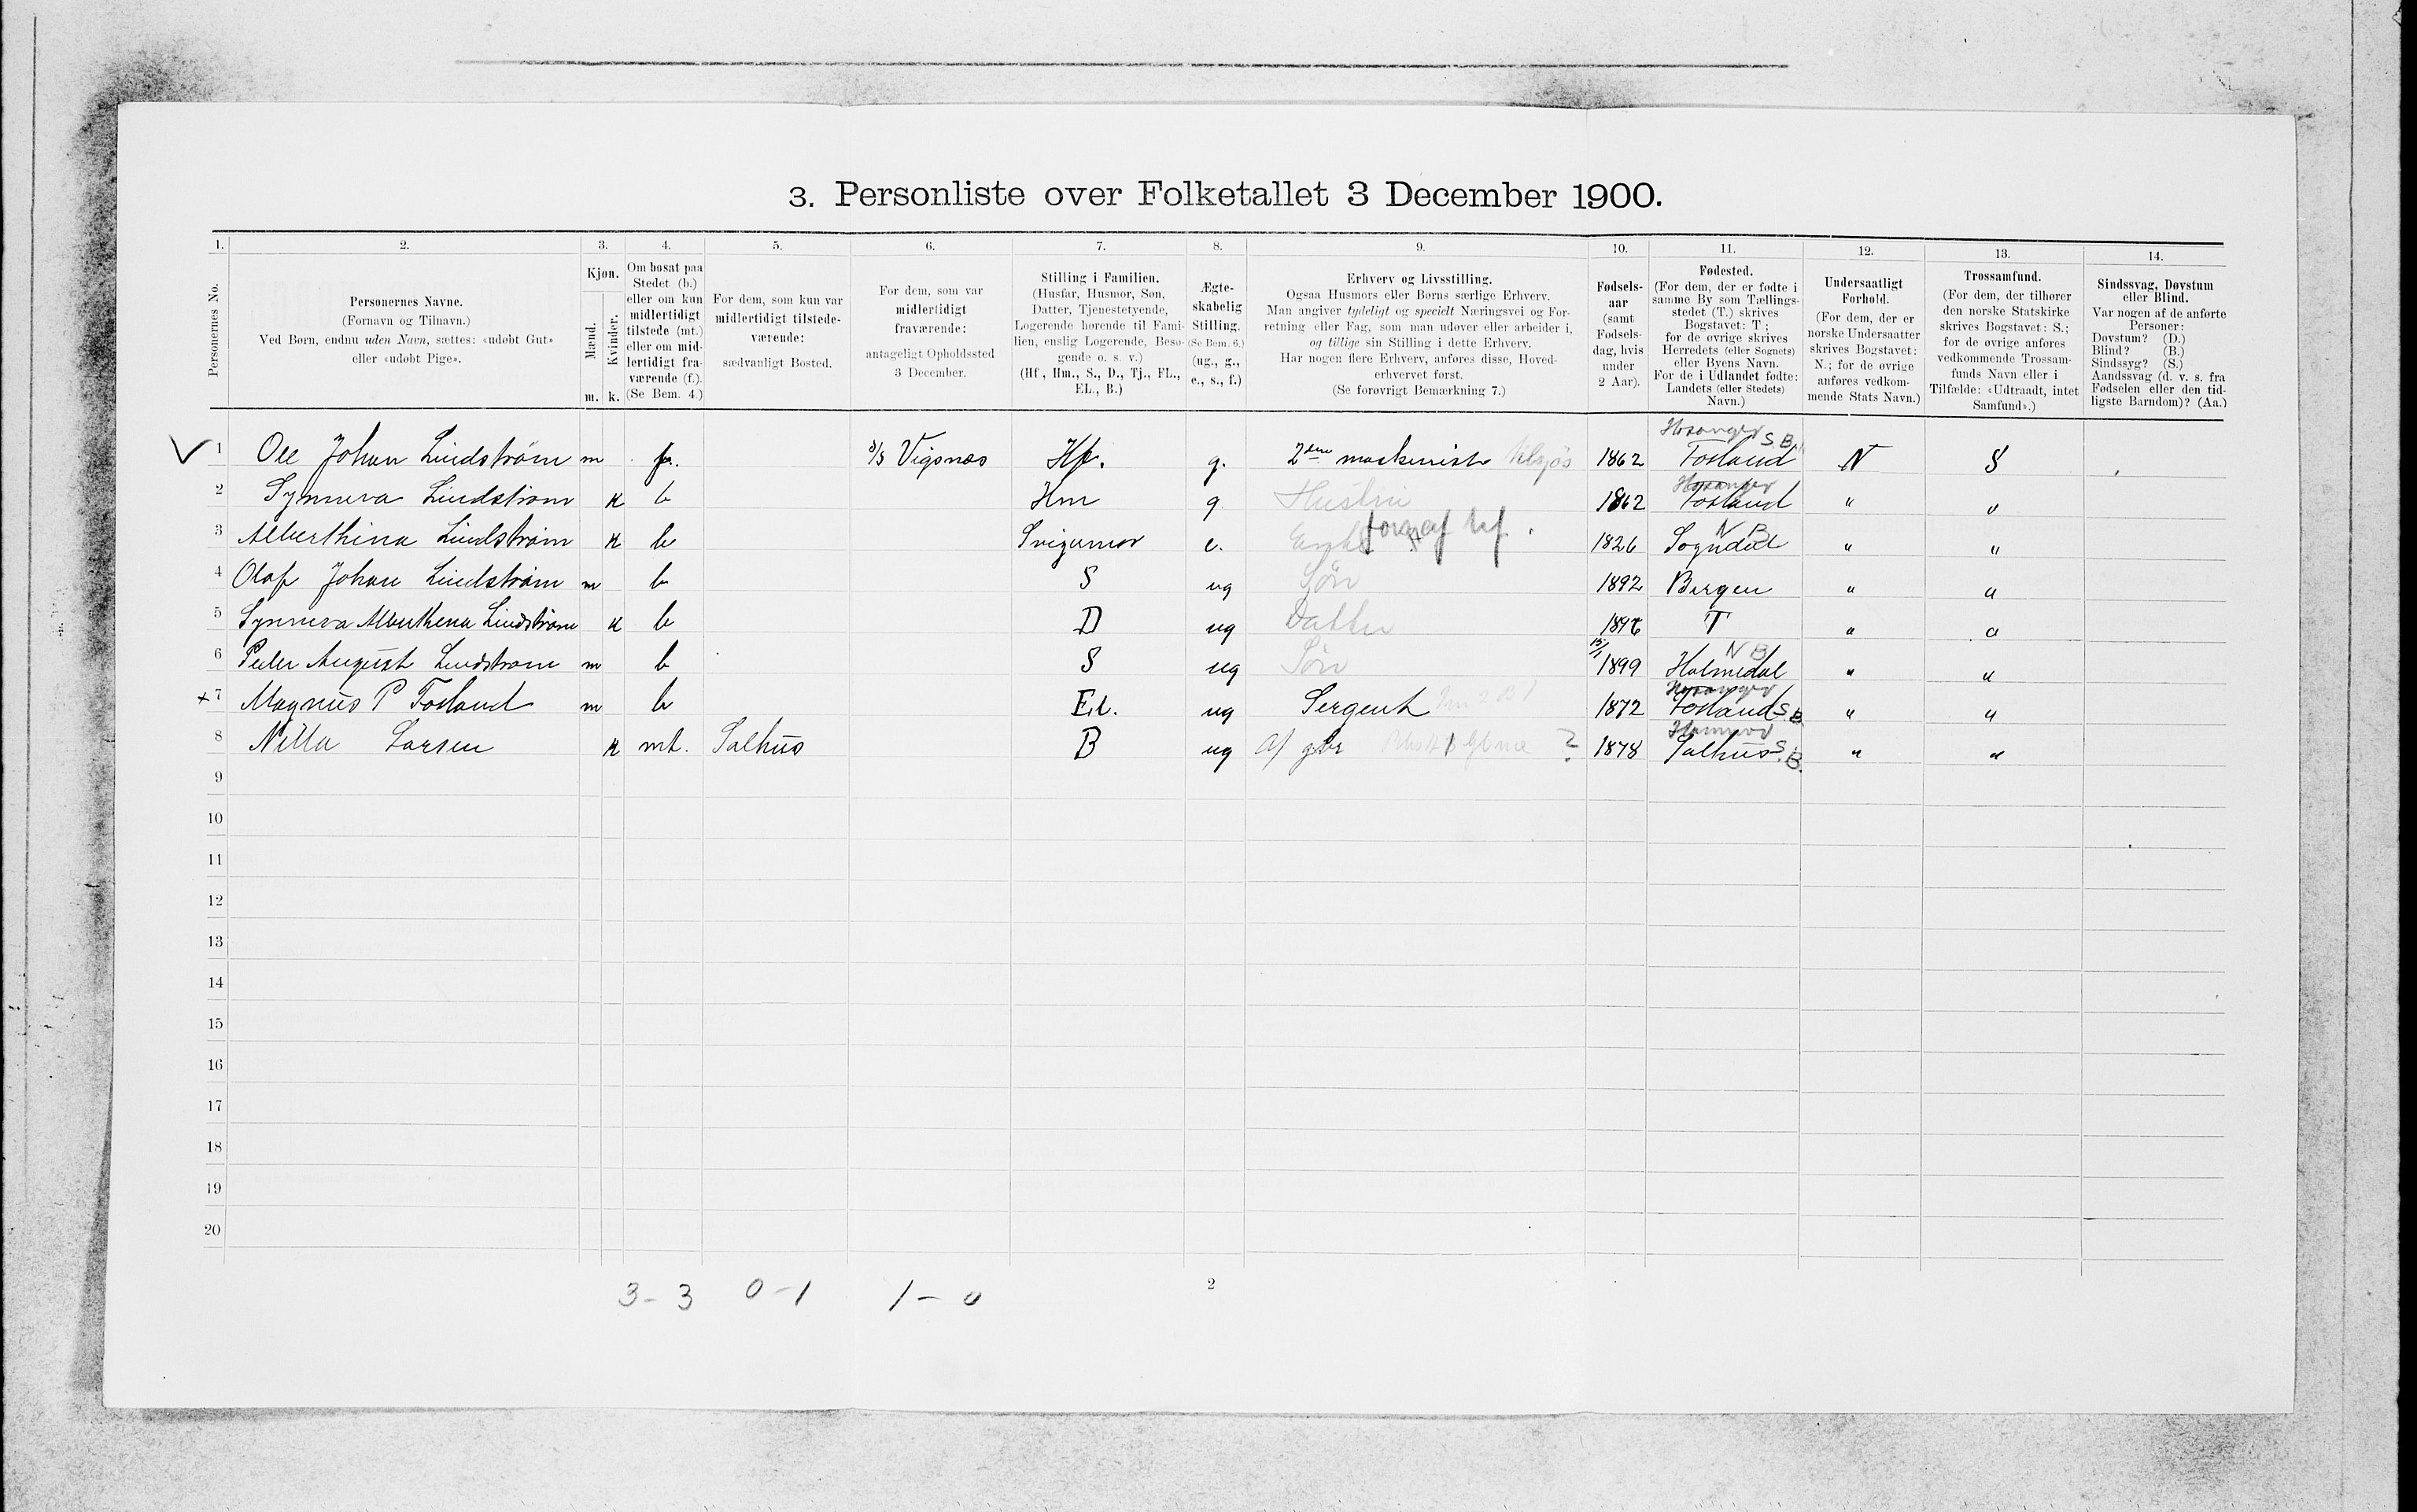 3. Personliste over Folketallet 3 December 1900.
1. 2. 3. 4. 5. 6. 7. 8. 9. 10. 11. 12. 13. 14.
Personernes No.
Personernes Navne.
(Fornavn og Tilnavn.)
Ved Børn, endnu uden Navn, sættes: «udøbt Gut»
eller «udøbt Pige».
Kjøn.
Mænd.
Kvinder.
m. k.
Om bosat paa
Stedet (b.)
eller om kun
midlertidigt
tilstede (mt.)
eller om mid-
lertidigt fra-
værende (f.).
(Se Bem. 4.)
For dem, som kun var
midlertidigt tilstede-
værende:
sædvanligt Bosted.
For dem, som var
midlertidigt
fraværende:
antageligt Opholdssted
3 December.
Stilling i Familien.
(Husfar, Husmor, Søn,
Datter, Tjenestetyende,
Logerende hørende til Fami-
lien, enslig Logerende, Besø-
gende o. s. v.)
(Hf., Hm., S., D., Tj., FL.,
EL., B.)
Ægte-
skabelig
Stilling.
(Se Bem. 6.)
(ug., g.,
e., s., f.)
Erhverv og Livsstilling.
Ogsaa Husmors eller Børns særlige Erhverv.
Man angiver tydeligt og specielt Næringsvei og For-
retning eller Fag, som man udøver eller arbeider i,
og tillige sin Stilling i dette Erhverv.
Har nogen flere Erhverv, anføres disse, Hoved-
erhvervet først.
(Se forøvrigt Bemærkning 7.)
Fødsels-
aar
(samt
Fødsels-
dag, hvis
under
2 Aar).
Fødested.
(For dem, der er fødte i
samme By som Tællings-
stedet (T.) skrives
Bogstavet: T;
for de øvrige skrives
Herredets (eller Sognets)
eller Byens Navn.
For de i Udlandet fødte:
Landets (eller Stedets)
Navn.)
Undersaatligt
Forhold.
(For dem, der er
norske Undersaatter
skrives Bogstavet:
N.; for de øvrige
anføres vedkom-
mende Stats Navn.)
Trossamfund.
(For dem, der tilhører
den norske Statskirke
skrives Bogstavet: S.;
for de øvrige anføres
vedkommende Trossam-
funds Navn eller i
Tilfælde: «Udtraadt, intet
Samfund».)
Sindssvag, Døvstum
eller Blind.
Var nogen af de anførte
Personer:
Døvstum? (D.)
Blind? (B.)
Sindssyg? (S.)
Aandssvag (d. v. s. fra
Fødselen eller den tid-
ligste Barndom)? (Aa.)
Hosanger S B
1 Ole Johan Lindstrøm m f. Vigsnæs Hf. g. 2den maskinist 1862 Fosland N S
Hosanger
2 Synneva Lindstrøm k b Hm g Hustru 1862 Fosland " "
N B
3 Alberthina Lindstrøm k b Svigumor e. Enke fors. af hf. 1826 Sogndal " "
4 Olaf Johan Lindstrøm m b S ug Søn 1892 Bergen " "
5 Synneva Alberthena Lindstrøm k b D ug Datter 1896 T " "
N B
6 Peder August Lindstrøm m b S ug Søn 1899 Holmedal " "
Hosanger
+ 7 Magnus P Fosland m b EL. ug Sergent 1872 Fosland S B. " "
Hammer
8 Nilla Larsen k mt. Salhus B ug ? 1878 Salhus S. B. " "
9
10
11
12
13
14
15
16
17
18
19
20
3 - 3 0 - 1 1 - 0
2